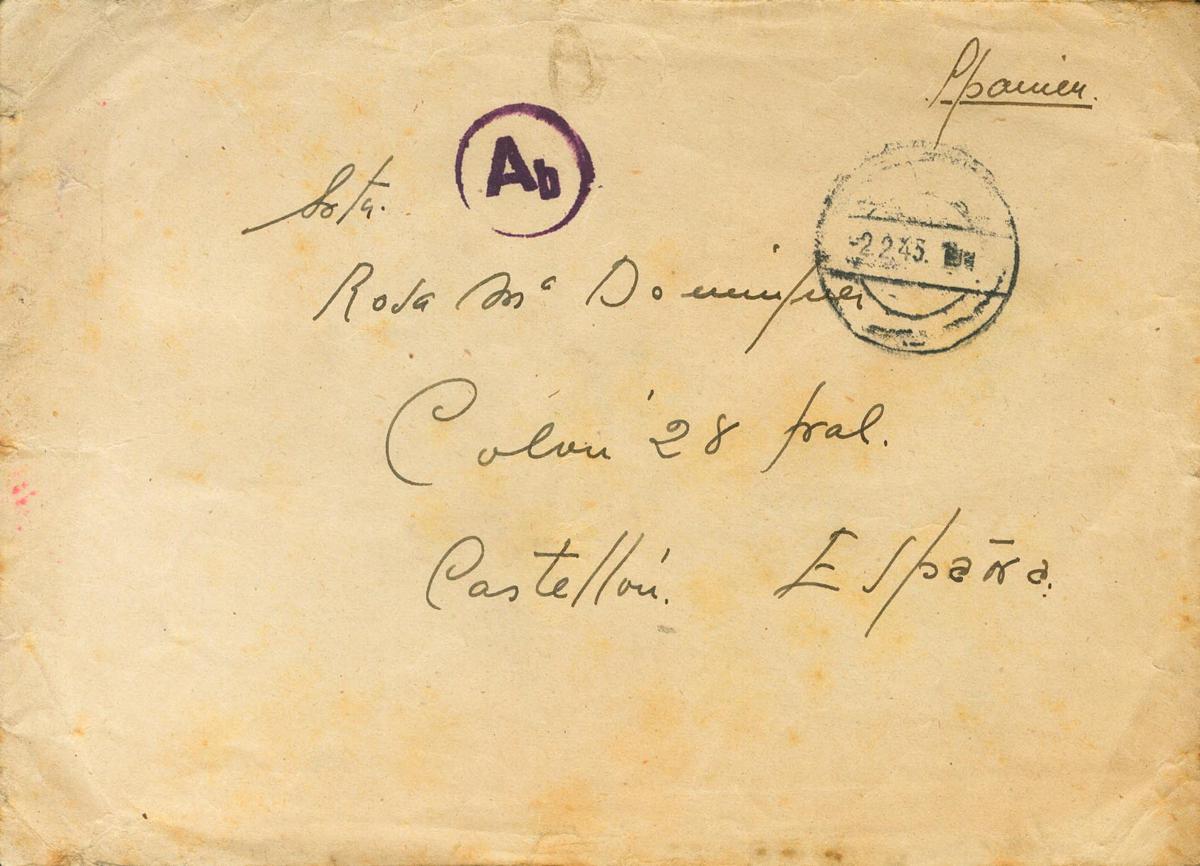 Spanien.
Ab
Srta.
-2.2.45.
Rosa Mª Dominguez
Colon 28 pral.
Castellón. España.